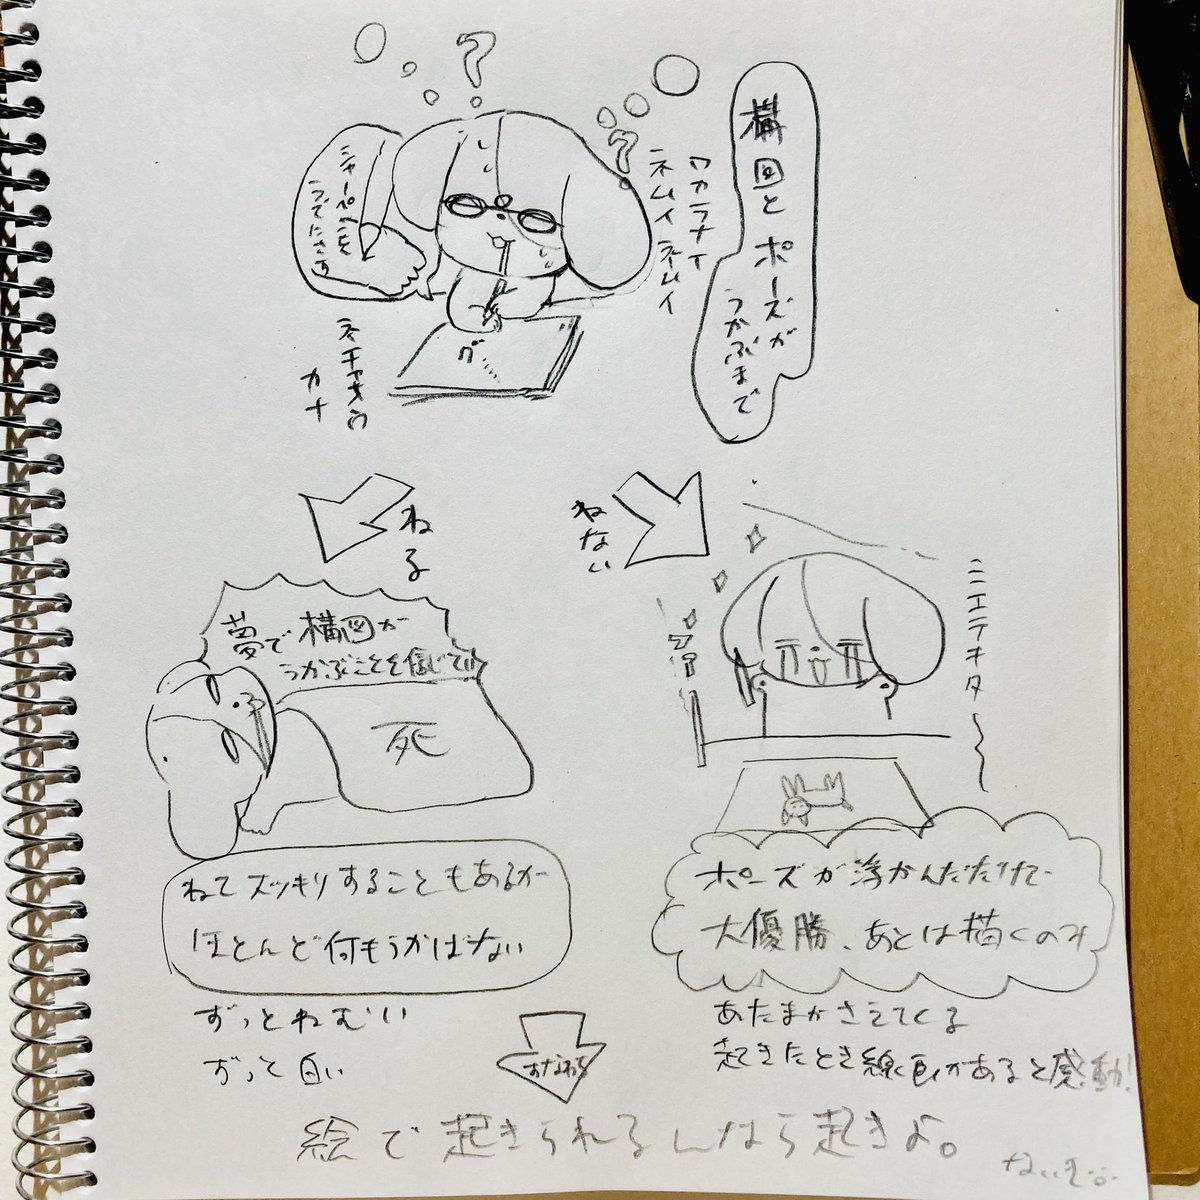 構図とポーズが
うかぶまで
ワカラナイ
ネムイネムイ
シャーペンを
うでにさす
ネチャオウ
カナ
グ
ねる
ねない
夢で構図が
うかぶことを信じて!!
死
ミエテキタ〜〜
ねてスッキリすることもあるが
ほとんど何もうかばない
ポーズが浮かんだだけで
大優勝、あとは描くのみ
ずっとねむい
ずっと白い
あたまがさえてくる
起きたとき線画があると感動!
すなわち
絵で起きられるんなら起きよ。